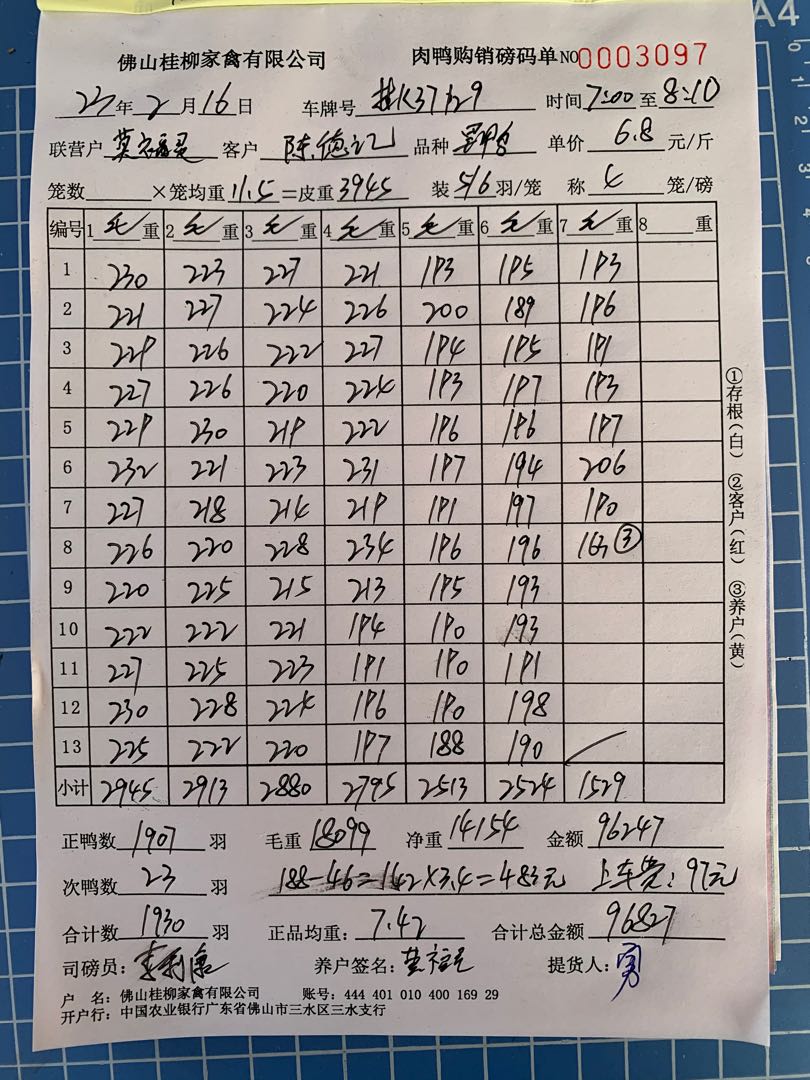 佛山桂柳家禽有限公司 肉鸭购销磅码单 NO 0003097
23年2月16日 车牌号 桂K37129 时间7:00至8:10
联营户 莫福 客户 陈德记 品种 单价 6.8 元/斤
笼数 ×笼均重 11.5 =皮重 3945 装 5/6 羽/笼 称 4 笼/磅
编号 1毛重 2毛重 3毛重 4毛重 5毛重 6毛重 7毛重 8 重
1 230 223 227 221 193 195 193
2 221 227 224 226 200 189 196
3 229 226 222 227 194 195 191
4 227 226 220 224 193 197 193
5 229 230 219 222 196 196 197
6 232 221 223 231 197 194 206
7 227 218 214 219 191 197 190
8 226 220 228 234 196 196 163 ③
9 220 225 215 213 195 193
10 222 222 221 194 190 193
11 227 225 223 191 190 191
12 230 228 224 196 190 198
13 225 222 220 197 188 190
小计 2945 2913 2880 2795 2513 2524 1529
正鸭数 1907 羽 毛重 18099 净重 14154 金额 96247
次鸭数 23 羽 188-46=142×3.4=483元 上车费:97元
合计数 1930 羽 正品均重: 7.42 合计总金额 96827
司磅员: 李利 养户签名: 莫福 提货人:
户 名: 佛山桂柳家禽有限公司 账号: 444 401 010 400 169 29
开户行: 中国农业银行广东省佛山市三水区三水支行
①存根(白) ②客户(红) ③养户(黄)
A4
0
1
2
3